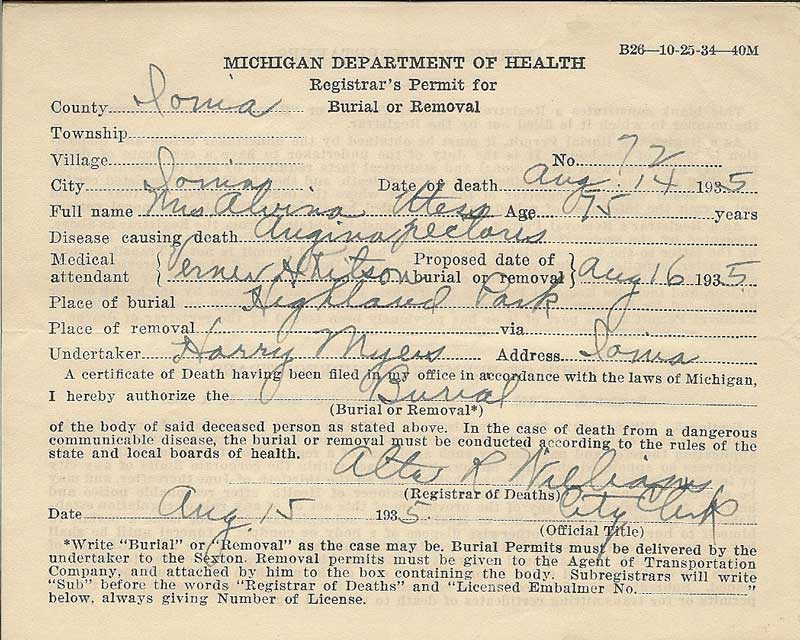 B26—10-25-34—40M
MICHIGAN DEPARTMENT OF HEALTH
Registrar's Permit for
Burial or Removal
County Ionia
Township
Village
No. 72
City Ionia Date of death Aug. 14 1935
Full name Mrs Alvina Age 75 years
Disease causing death Angina pectoris
Medical attendant Verner H Kitson Proposed date of burial or removal Aug 16 1935
Place of burial Highland Park
Place of removal via
Undertaker Harry Myers Address Ionia
A certificate of Death having been filed in my office in accordance with the laws of Michigan,
I hereby authorize the Burial
(Burial or Removal*)
of the body of said deceased person as stated above. In the case of death from a dangerous
communicable disease, the burial or removal must be conducted according to the rules of the
state and local boards of health.
Alta R Williams
(Registrar of Deaths)
Date Aug. 15 1935. City Clerk
(Official Title)
*Write "Burial" or "Removal" as the case may be. Burial Permits must be delivered by the
undertaker to the Sexton. Removal permits must be given to the Agent of Transportation
Company, and attached by him to the box containing the body. Subregistrars will write
"Sub" before the words "Registrar of Deaths" and "Licensed Embalmer No. "
below, always giving Number of License.